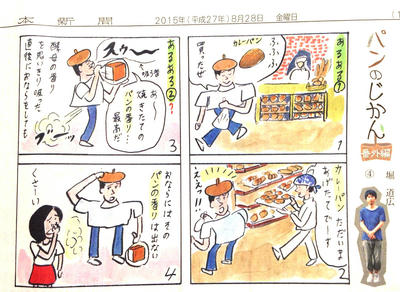 本 新 聞
2015年(平成27年)8月28日 金曜日
パンのじかん
番外編
④
堀 道広
あるある①
カレーパン
ふふふ
買ったぜ
1
カレーパン、ただいま
あげたてでーす
ええっ!!
2
あるある②
スゥ〜
(吸う音)
あ〜
焼きたての
パンの香り…
最高だ
酵母の香り
を思いきり吸った
直後におならをしても
3
おならにはその
パンの香りは出ない
くさーい
4